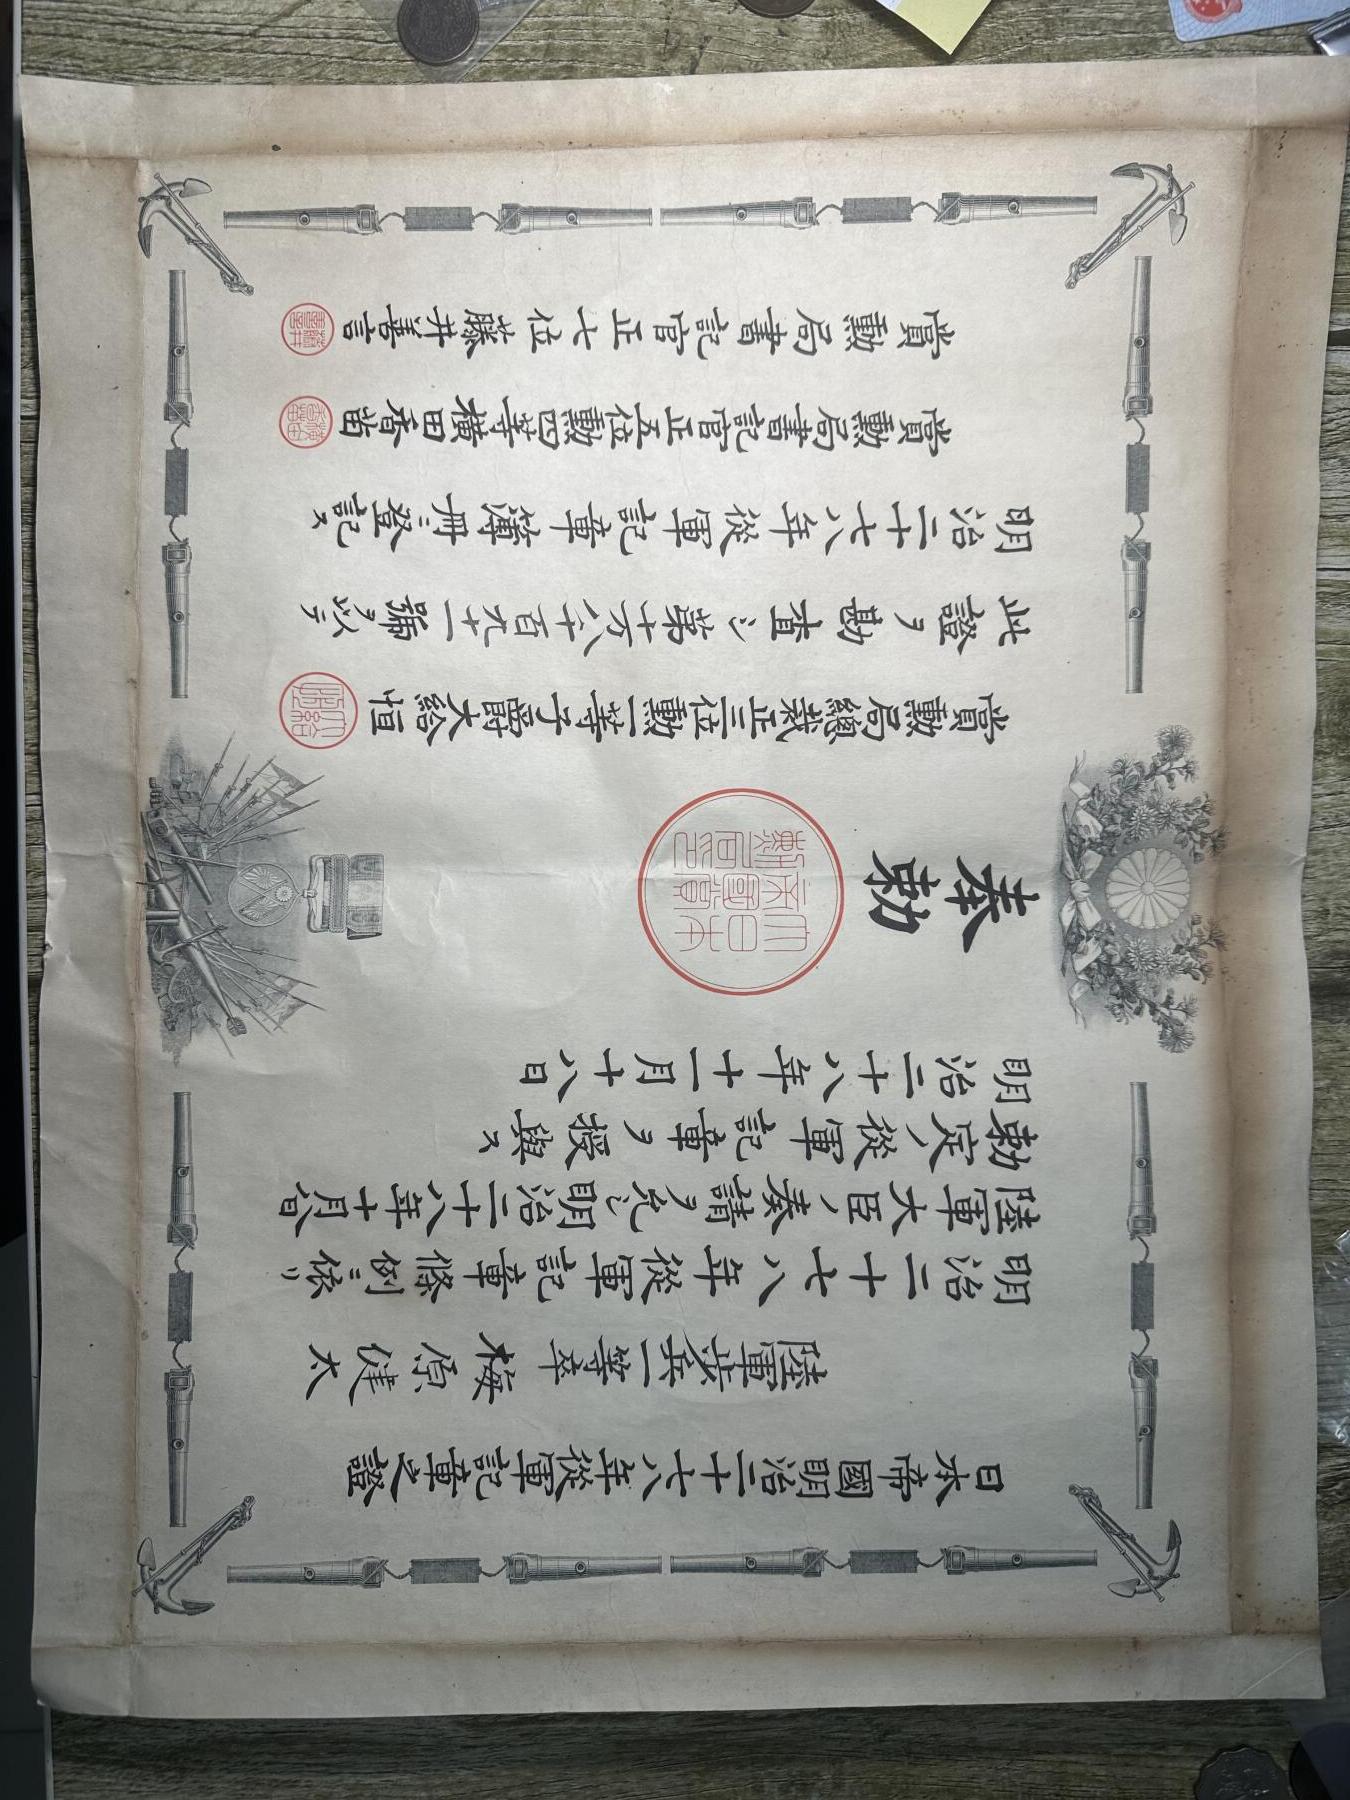 日本帝國明治二十七八年從軍記章之證
陸軍歩兵一等卒 梅原健太
明治二十七八年從軍記章條例ニ依リ
陸軍大臣ノ奏請ヲ允シ明治二十八年十月八日
勅定ノ從軍記章ヲ授與ス
明治二十八年十一月十八日
奉勅
大日本帝國賞勳局印
賞勳局總裁正三位勳一等子爵大給恒
此證ヲ勘査シ第十万八千百九十一號ヲ以テ
明治二十七八年從軍記章簿冊ニ登記ス
賞勳局書記官正五位勳四等横田香苗
賞勳局書記官正七位藤井善言